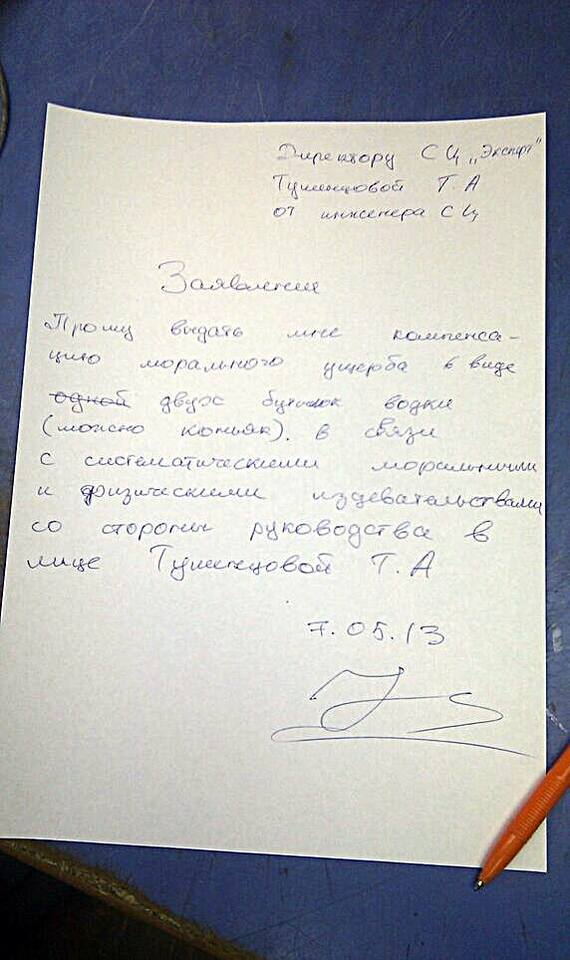 Директору СЦ „Эксперт"
Тушенцовой Т.А
от инженера СЦ
Заявление
Прошу выдать мне компенса-
цию морального ущерба в виде
одной двух бутылок водки
(можно коньяк). в связи
с систематическими моральными
и физическими издевательствами
со стороны руководства в
лице Тушенцовой Т.А
7.05.13